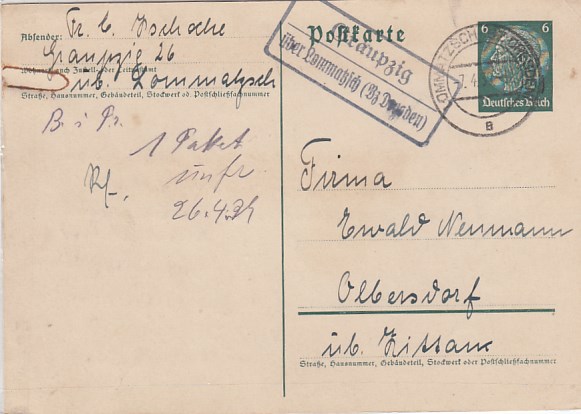 Absender: Fr. C. Zschoche
Graupzig 26
Wohnort, auch Zustell- oder Leitpostamt
üb. Lommatzsch
Straße, Hausnummer, Gebäudeteil, Stockwerk od. Postschließfachnummer
1 Paket
26.4.34
Postkarte
Graupzig
über Lommatzsch (Bz Dresden)
LOMMATZSCH
a
6 6
Deutsches Reich
Firma
Ewald Neumann
Olbersdorf
üb. Zittau
Straße, Hausnummer, Gebäudeteil, Stockwerk oder Postschließfachnummer